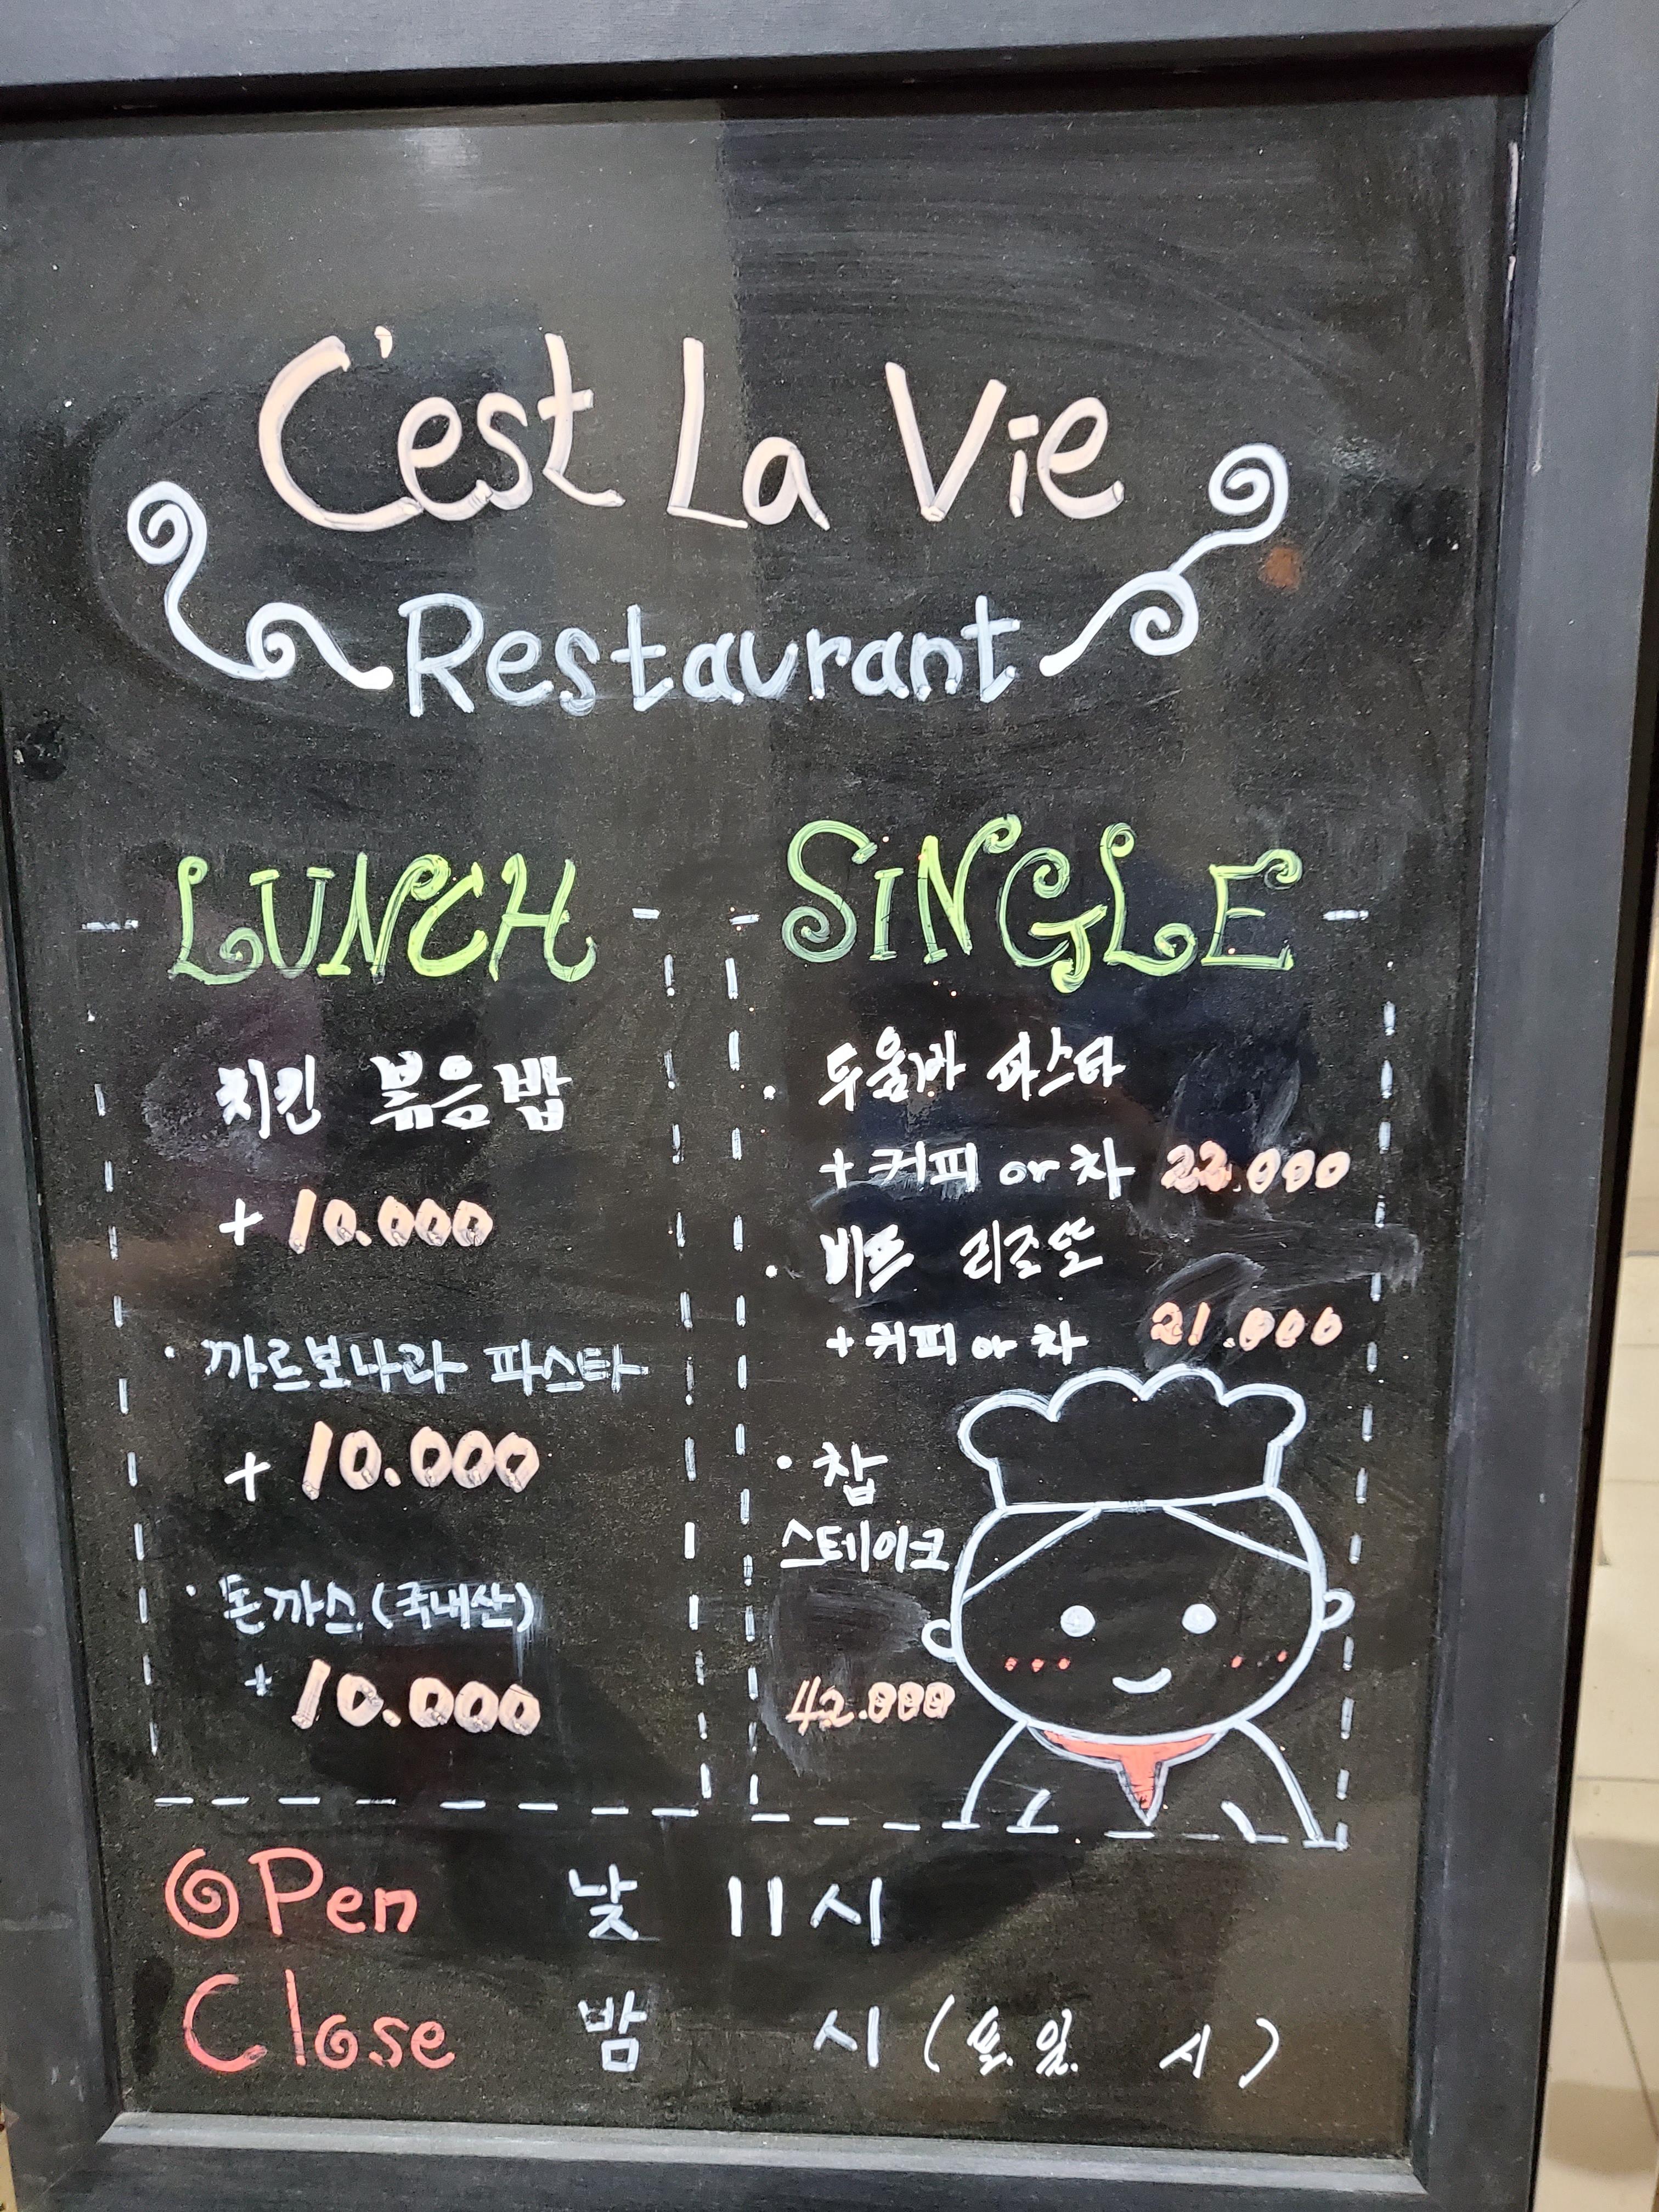 C'est La Vie
Restaurant
LUNCH
치킨 볶음밥
+ 10.000
· 까르보나라 파스타
+ 10.000
· 돈까스 (국내산)
+ 10.000
SiNGLE
· 투움바 파스타
+ 커피 or 차 22.000
· 비프 리조또
+ 커피 or 차 21.000
· 찹
스테이크
42.000
OPen 낮 11시
Close 밤 시 (토.일. 시)